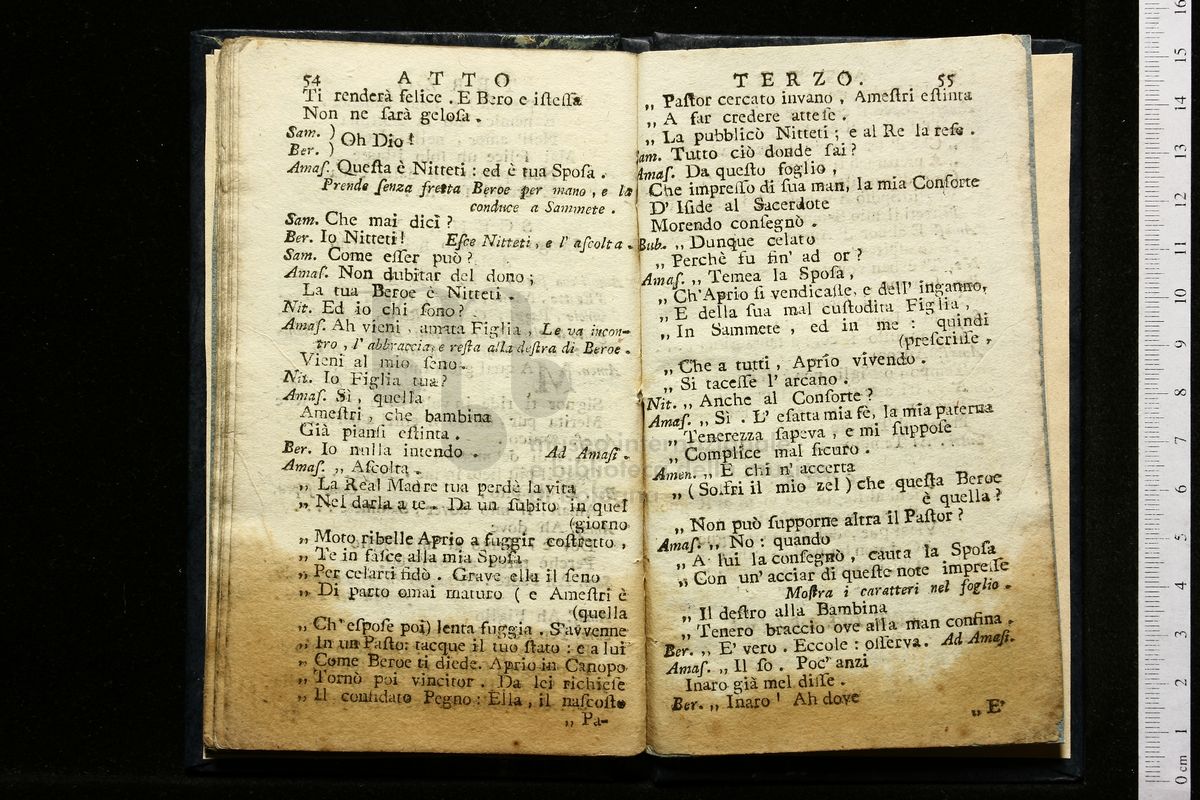 54 ATTO
Ti renderà felice . E Bero e iſteſſa
Non ne ſarà geloſa .
Sam. )
Ber. ) Oh Dio !
Amaſ. Queſta è Nitteti : ed è tua Spoſa .
Prende ſenza fretta Beroe per mano , e la
conduce a Sammete .
Sam. Che mai dici ?
Ber. Io Nitteti ! Eſce Nitteti , e l' aſcolta .
Sam. Come eſſer può ?
Amaſ. Non dubitar del dono ;
La tua Beroe è Nitteti .
Nit. Ed io chi ſono ?
Amaſ. Ah vieni , amata Figlia , Le va incon-
tro , l' abbraccia, e reſta alla deſtra di Beroe .
Vieni al mio ſeno .
Nit. Io Figlia tua ?
Amaſ. Sì , quella
Ameſtri , che bambina
Già pianſi eſtinta .
Ber. Io nulla intendo . Ad Amaſi .
Amaſ. „ Aſcolta .
„ La Real Madre tua perdè la vita
„ Nel darla a te . Da un ſubito in quel
(giorno
„ Moto ribelle Aprio a fuggir coſtretto ,
„ Te in faſce alla mia Spoſa
„ Per celarti fidò . Grave ella il ſeno
„ Di parto omai maturo ( e Ameſtri è
(quella
„ Ch' eſpoſe poi) lenta fuggìa . S'avvenne
„ In un Paſtor: tacque il tuo ſtato : e a lui
„ Come Beroe ti diede. Aprio in Canopo
„ Tornò poi vincitor . Da lei richieſe
„ Il confidato Pegno : Ella , il naſcoſto
„ Pa-
TERZO. 55
„ Paſtor cercato invano , Ameſtri eſtinta
„ A far credere atteſe .
„ La pubblicò Nitteti ; e al Re la reſe .
Sam. Tutto ciò donde ſai ?
Amaſ. Da queſto foglio ,
Che impreſſo di ſua man, la mia Conſorte
D' Iſide al Sacerdote
Morendo conſegnò .
Bub. „ Dunque celato
„ Perchè fu fin' ad or ?
Amaſ. „ Temea la Spoſa ,
„ Ch'Aprio ſi vendicaſſe, e dell' inganno,
„ E della ſua mal cuſtodita Figlia ,
„ In Sammete , ed in me : quindi
(preſcriſſe ,
„ Che a tutti , Aprio vivendo .
„ Si taceſſe l' arcano .
Nit. „ Anche al Conſorte ?
Amaſ. „ Sì . L' eſatta mia fè, la mia paterna
„ Tenerezza ſapeva , e mi ſuppoſe
„ Complice mal ſicuro .
Amen. „ E chi n' accerta
„ ( Soffri il mio zel ) che queſta Beroe
è quella ?
„ Non può ſupporne altra il Paſtor ?
Amaſ. „ No : quando
„ A lui la conſegnò , cauta la Spoſa
„ Con un' acciar di queſte note impreſſe
Moſtra i caratteri nel foglio .
„ Il deſtro alla Bambina
„ Tenero braccio ove alla man confina .
Ber. „ E' vero . Eccole : oſſerva. Ad Amaſi.
Amaſ. „ Il ſo . Poc' anzi
Inaro già mel diſſe .
Ber. „ Inaro ! Ah dove
„ E'